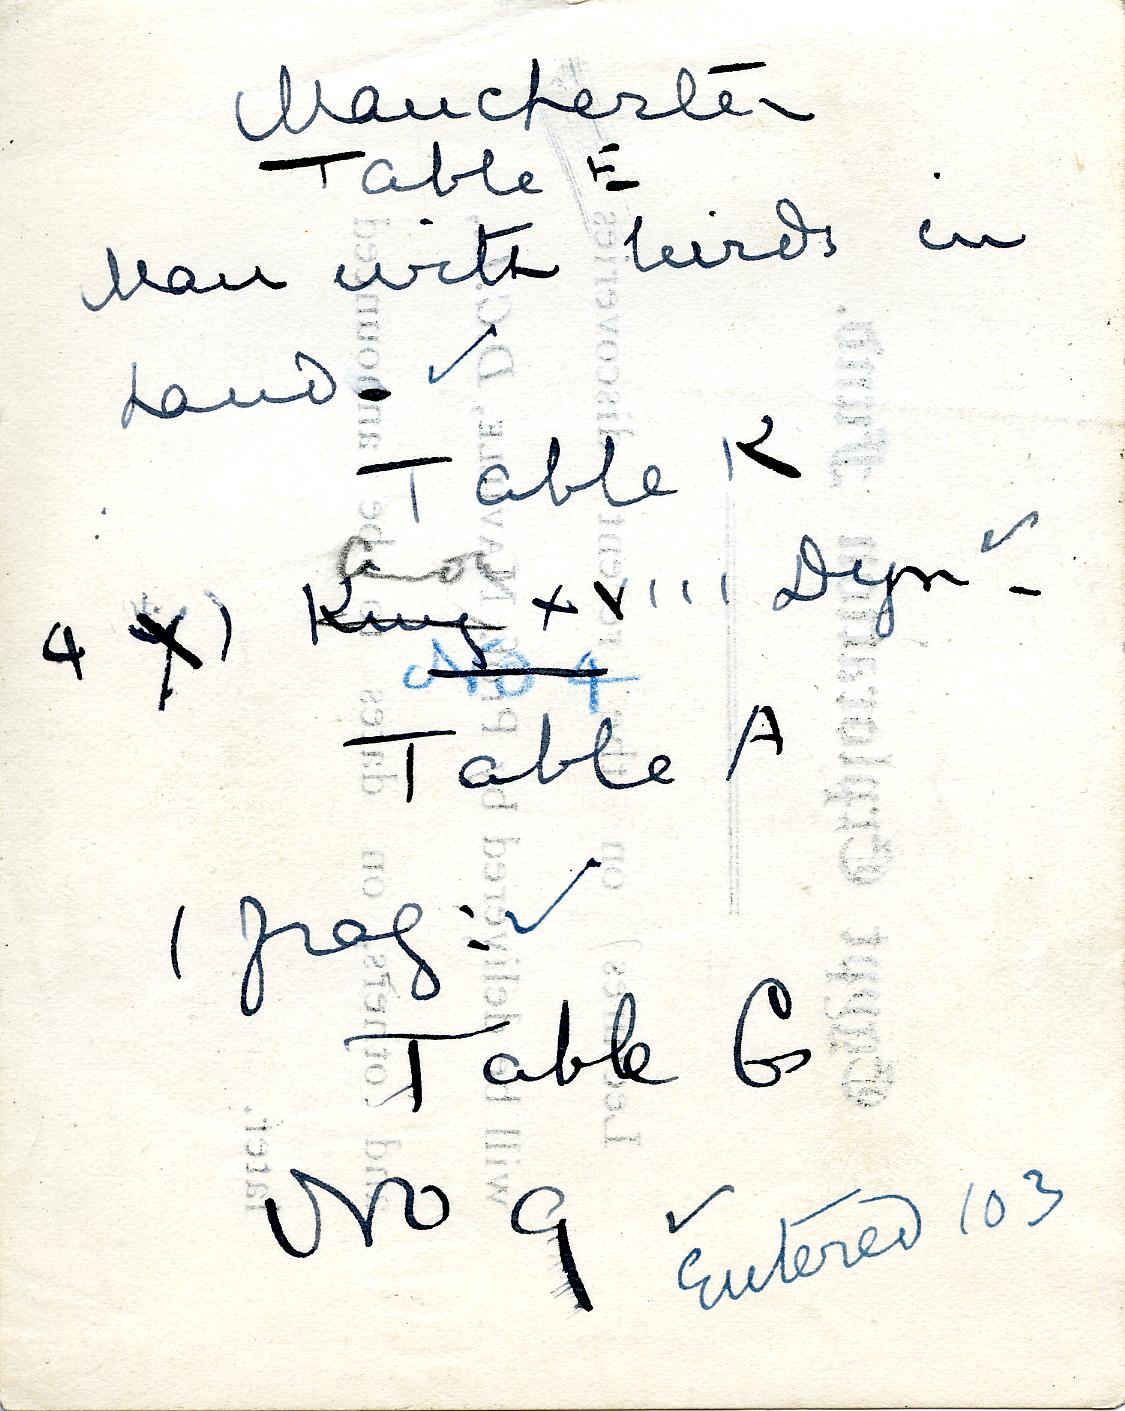 Manchester
Table E
Man with birds in
hand. ✓
Table K
4 X) King XVIII Dyn ✓ -
No 4
Table A
1 frag: ✓
Table G
No 9 ✓
Entered 103